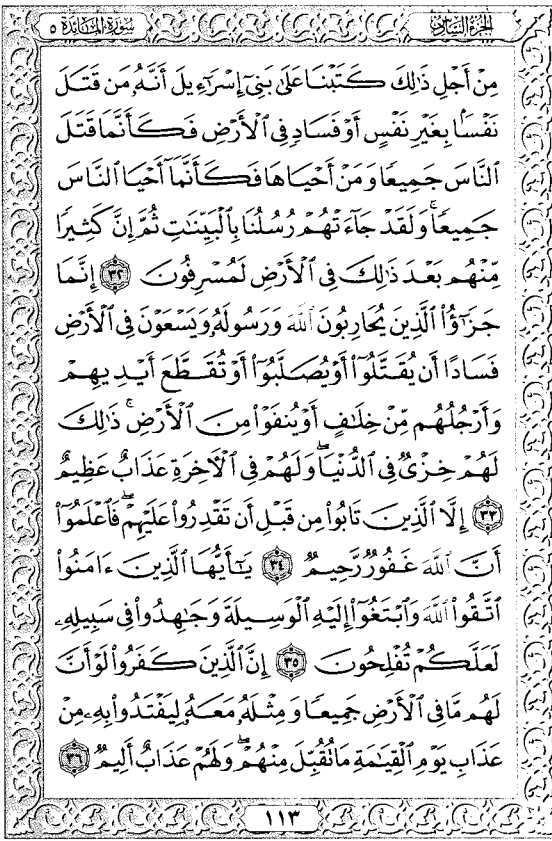 الجزء السادس
سورة المائدة ٥
مِنْ أَجْلِ ذَٰلِكَ كَتَبْنَا عَلَىٰ بَنِىٓ إِسْرَٰٓءِيلَ أَنَّهُۥ مَن قَتَلَ
نَفْسًۢا بِغَيْرِ نَفْسٍ أَوْ فَسَادٍ فِى ٱلْأَرْضِ فَكَأَنَّمَا قَتَلَ
ٱلنَّاسَ جَمِيعًا وَمَنْ أَحْيَاهَا فَكَأَنَّمَآ أَحْيَا ٱلنَّاسَ
جَمِيعًا ۚ وَلَقَدْ جَآءَتْهُمْ رُسُلُنَا بِٱلْبَيِّنَٰتِ ثُمَّ إِنَّ كَثِيرًا
مِّنْهُم بَعْدَ ذَٰلِكَ فِى ٱلْأَرْضِ لَمُسْرِفُونَ ٣٢ إِنَّمَا
جَزَٰٓؤُا۟ ٱلَّذِينَ يُحَارِبُونَ ٱللَّهَ وَرَسُولَهُۥ وَيَسْعَوْنَ فِى ٱلْأَرْضِ
فَسَادًا أَن يُقَتَّلُوٓا۟ أَوْ يُصَلَّبُوٓا۟ أَوْ تُقَطَّعَ أَيْدِيهِمْ
وَأَرْجُلُهُم مِّنْ خِلَٰفٍ أَوْ يُنفَوْا۟ مِنَ ٱلْأَرْضِ ۚ ذَٰلِكَ
لَهُمْ خِزْىٌ فِى ٱلدُّنْيَا ۖ وَلَهُمْ فِى ٱلْءَاخِرَةِ عَذَابٌ عَظِيمٌ
٣٣ إِلَّا ٱلَّذِينَ تَابُوا۟ مِن قَبْلِ أَن تَقْدِرُوا۟ عَلَيْهِمْ ۖ فَٱعْلَمُوٓا۟
أَنَّ ٱللَّهَ غَفُورٌ رَّحِيمٌ ٣٤ يَٰٓأَيُّهَا ٱلَّذِينَ ءَامَنُوا۟
ٱتَّقُوا۟ ٱللَّهَ وَٱبْتَغُوٓا۟ إِلَيْهِ ٱلْوَسِيلَةَ وَجَٰهِدُوا۟ فِى سَبِيلِهِۦ
لَعَلَّكُمْ تُفْلِحُونَ ٣٥ إِنَّ ٱلَّذِينَ كَفَرُوا۟ لَوْ أَنَّ
لَهُم مَّا فِى ٱلْأَرْضِ جَمِيعًا وَمِثْلَهُۥ مَعَهُۥ لِيَفْتَدُوا۟ بِهِۦ مِنْ
عَذَابِ يَوْمِ ٱلْقِيَٰمَةِ مَا تُقُبِّلَ مِنْهُمْ ۖ وَلَهُمْ عَذَابٌ أَلِيمٌ ٣٦
١١٣